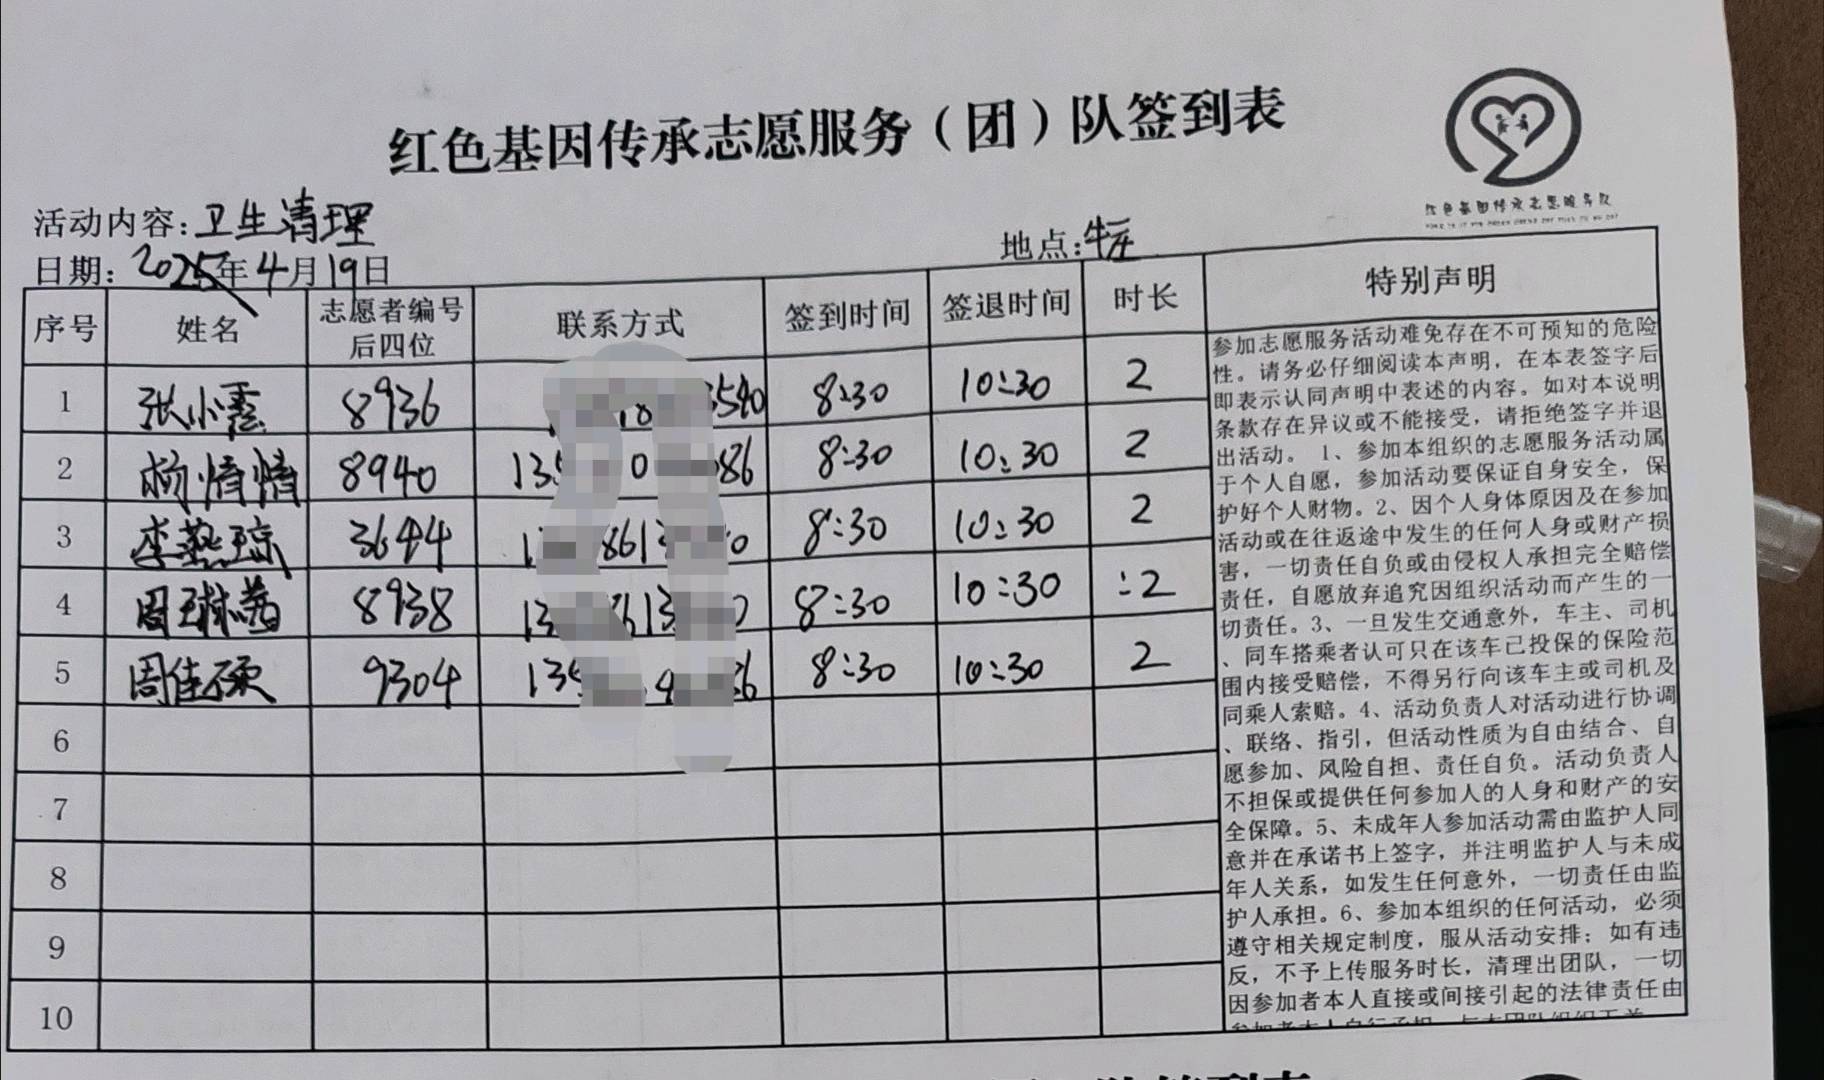 红色基因传承志愿服务（团）队签到表
红色基因传承志愿服务队
活动内容：卫生清理
地点：牛庄
日期：2025年4月19日
序号 姓名 志愿者编号后四位 联系方式 签到时间 签退时间 时长 特别声明
1 张小霞 8936 3540 8:30 10:30 2
2 杨情情 8940 135 0 086 8:30 10:30 2
3 李燕琼 3644 1 8613 0 8:30 10:30 2
4 周琳茜 8938 13 613 0 8:30 10:30 :2
5 周佳硕 9304 135 4 26 8:30 10:30 2
6
7
8
9
10
参加志愿服务活动难免存在不可预知的危险
性。请务必仔细阅读本声明，在本表签字后
即表示认同声明中表述的内容。如对本说明
条款存在异议或不能接受，请拒绝签字并退
出活动。1、参加本组织的志愿服务活动属
于个人自愿，参加活动要保证自身安全，保
护好个人财物。2、因个人身体原因及在参加
活动或在往返途中发生的任何人身或财产损
害，一切责任自负或由侵权人承担完全赔偿
责任，自愿放弃追究因组织活动而产生的一
切责任。3、一旦发生交通意外，车主、司机
、同车搭乘者认可只在该车已投保的保险范
围内接受赔偿，不得另行向该车主或司机及
同乘人索赔。4、活动负责人对活动进行协调
、联络、指引，但活动性质为自由结合、自
愿参加、风险自担、责任自负。活动负责人
不担保或提供任何参加人的人身和财产的安
全保障。5、未成年人参加活动需由监护人同
意并在承诺书上签字，并注明监护人与未成
年人关系，如发生任何意外，一切责任由监
护人承担。6、参加本组织的任何活动，必须
遵守相关规定制度，服从活动安排；如有违
反，不予上传服务时长，清理出团队，一切
因参加者本人直接或间接引起的法律责任由